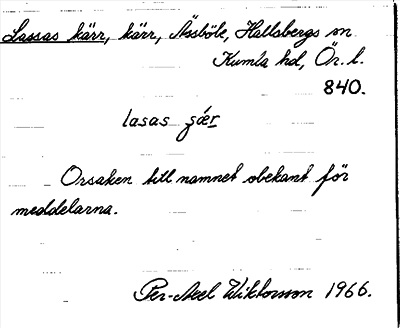 Lassas kärr, kärr, Åssböle, Hallsbergs sn
Kumla hd, Ör. l.
840.
lasas
Orsaken till namnet obekant för
meddelarna.
Per-Axel Wiktorsson 1966.